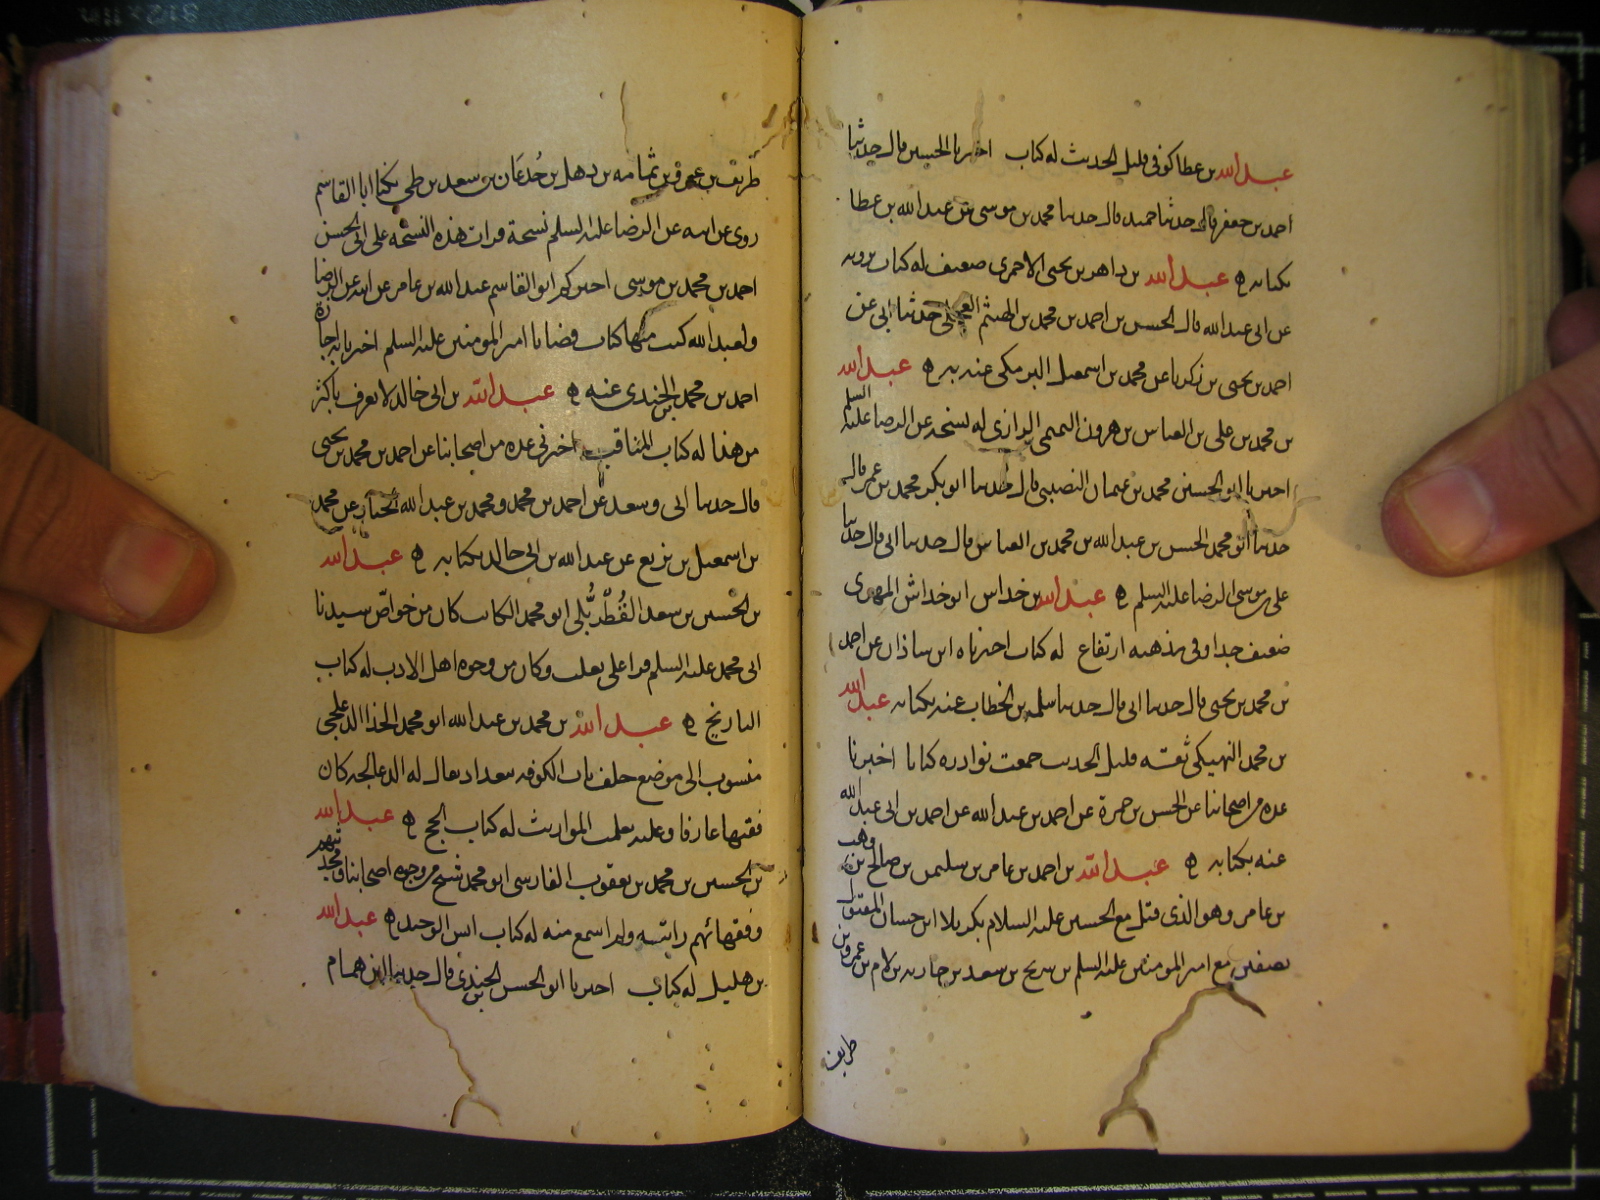 عبد الله بن عطا كوفي قليل الحديث له كتاب اخبرنا الحسين قال حدثنا
احمد بن جعفر قال حدثنا حميد قال حدثنا محمد بن موسى عن عبد الله بن عطا
بكتابه ه عبد الله بن داهر بن يحيى الاحمرى ضعيف له كتاب يرويه
عن ابى عبد الله قال الحسن بن احمد بن محمد بن الهيثم العجلى حدثنا ابى عن
احمد بن يحيى بن زكريا عن محمد بن اسمعيل البرمكى عنه به ه عبد الله
بن محمد بن على بن العباس بن هرون التميمى الرازى له نسخة عن الرضا عليه السلم
اخبرنا ابو الحسين محمد بن عثمان النصيبى قال حدثنا ابو بكر محمد بن عمر قال
حدثنا ابو محمد الحسن بن عبد الله بن محمد بن العباس قال حدثنا ابى قال حدثنا
على بن موسى الرضا عليه السلم ه عبد الله بن خداش ابو خداش المهرى
ضعيف جدا وفى مذهبه ارتفاع له كتاب اخبرناه ابن شاذان عن احمد
بن محمد بن يحيى قال حدثنا ابى قال حدثنا سلمه بن الخطاب عنه بكتابه عبد الله
بن محمد النهيكى ثقه قليل الحديث جمعت نوادره كتابا اخبرنا
عده من اصحابنا عن الحسن بن حمزة عن احمد بن عبد الله عن احمد بن ابى عبد الله
عنه بكتابه ه عبد الله بن احمد بن عامر بن سليمن بن صالح بن وهب
بن عامر وهو الذى قتل مع الحسين عليه السلام بكربلا ابن حسان المقتول
بصفين مع امير المومنين عليه السلم بن شريح بن سعد بن حارثه بن لام بن عمرو بن
طريف
طريف بن عمرو بن ثمامه بن ذهل بن جُدعَان بن سعد بن طى يكنا ابا القاسم
روى عن ابيه عن الرضا عليه السلم نسخة قرات هذه النسخه على ابى الحسن
احمد بن محمد بن موسى اخبركم ابو القاسم عبد الله بن عامر عن ابيه عن الرضا
ولعبد الله كتب منها كتاب قضايا امير المومنين عليه السلم اخبرنا به اجازة
احمد بن محمد بن الجندى عنه ه عبد الله بن ابى خالد لا يعرف باكثر
من هذا له كتاب المناقب اخبرنى عده من اصحابنا عن احمد بن محمد بن يحيى
قال حدثنا ابى وسعد عن احمد بن محمد ومحمد بن عبد الله عن محمد
بن اسمعيل بن بزيع عن عبد الله بن ابى خالد بكتابه ه عبد الله
بن الحسين بن سعد القُطْرُبُّلى ابو محمد الكاتب كان من خواصّ سيدنا
ابى محمد عليه السلم قرا على ثعلب وكان من وجوه اهل الادب له كتاب
التاريخ ه عبد الله بن محمد بن عبد الله ابو محمد الحذا الدعلجى
منسوب الى موضع خلف باب الكوفه ببغداد يقال له الدعالجه كان
فقيها عارفا وعليه تعلمت المواريث له كتاب الحج ه عبد الله
بن الحسين بن محمد بن يعقوب الفارسى ابو محمد شيخ من وجوه اصحابنا ومحدثيهم
وفقهائهم رايته ولم اسمع منه له كتاب انس الوحيد ه عبد الله
بن هليل له كتاب اخبرنا ابو الحسن بن الجندى قال حدثنا ابن همام